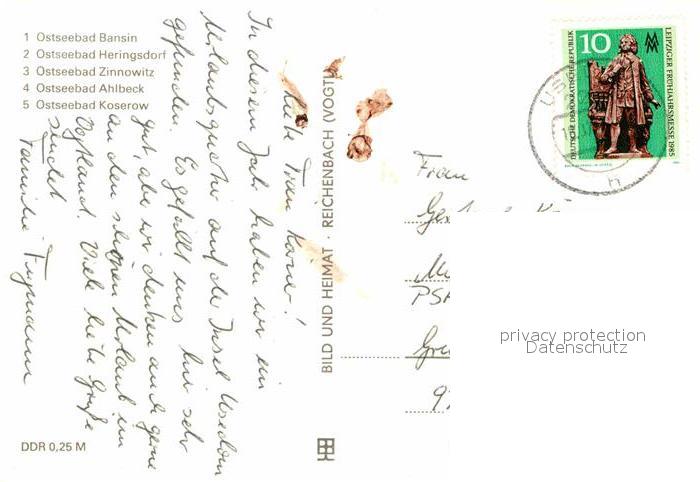 1 Ostseebad Bansin
2 Ostseebad Heringsdorf
3 Ostseebad Zinnowitz
4 Ostseebad Ahlbeck
5 Ostseebad Koserow
Liebe Frau
In diesem Jahr haben wir ein
Urlaubsquartier auf der Insel Usedom
gefunden. Es gefällt uns hier sehr
gut, aber wir denken auch gerne
an den schönen Urlaub im
Vogtland. Viele liebe Grüße
sendet
Familie
DDR 0,25 M
BILD UND HEIMAT · REICHENBACH (VOGTL)
DEUTSCHE DEMOKRATISCHE REPUBLIK
10
LEIPZIGER FRÜHJAHRSMESSE 1985
Frau
privacy protection
Datenschutz